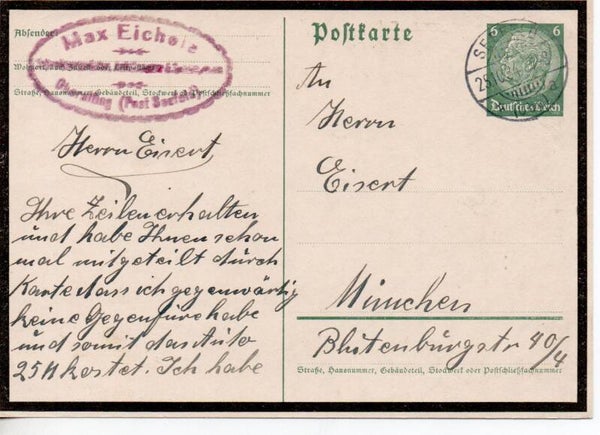 Absender:
Max Eichele
Wohnort, auch Zustell- oder Leitpostamt
Straße, Hausnummer, Gebäudeteil, Stockwerk od. Postschließfachnummer
(Post
Postkarte
6 6
Deutsches Reich
An
Herrn
Eisert
München
Blutenburgstr 40/4
Straße, Hausnummer, Gebäudeteil, Stockwerk oder Postschließfachnummer
Herrn Eisert,
Ihre Zeilen erhalten
und habe Ihnen schon
mal mitgeteilt durch
Karte dass ich gegenwärtig
keine Gegenfuhre habe
und somit das Auto
25 M kostet. Ich habe